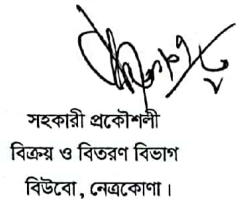 সহকারী প্রকৌশলী
বিক্রয় ও বিতরণ বিভাগ
বিউবো, নেত্রকোণা।